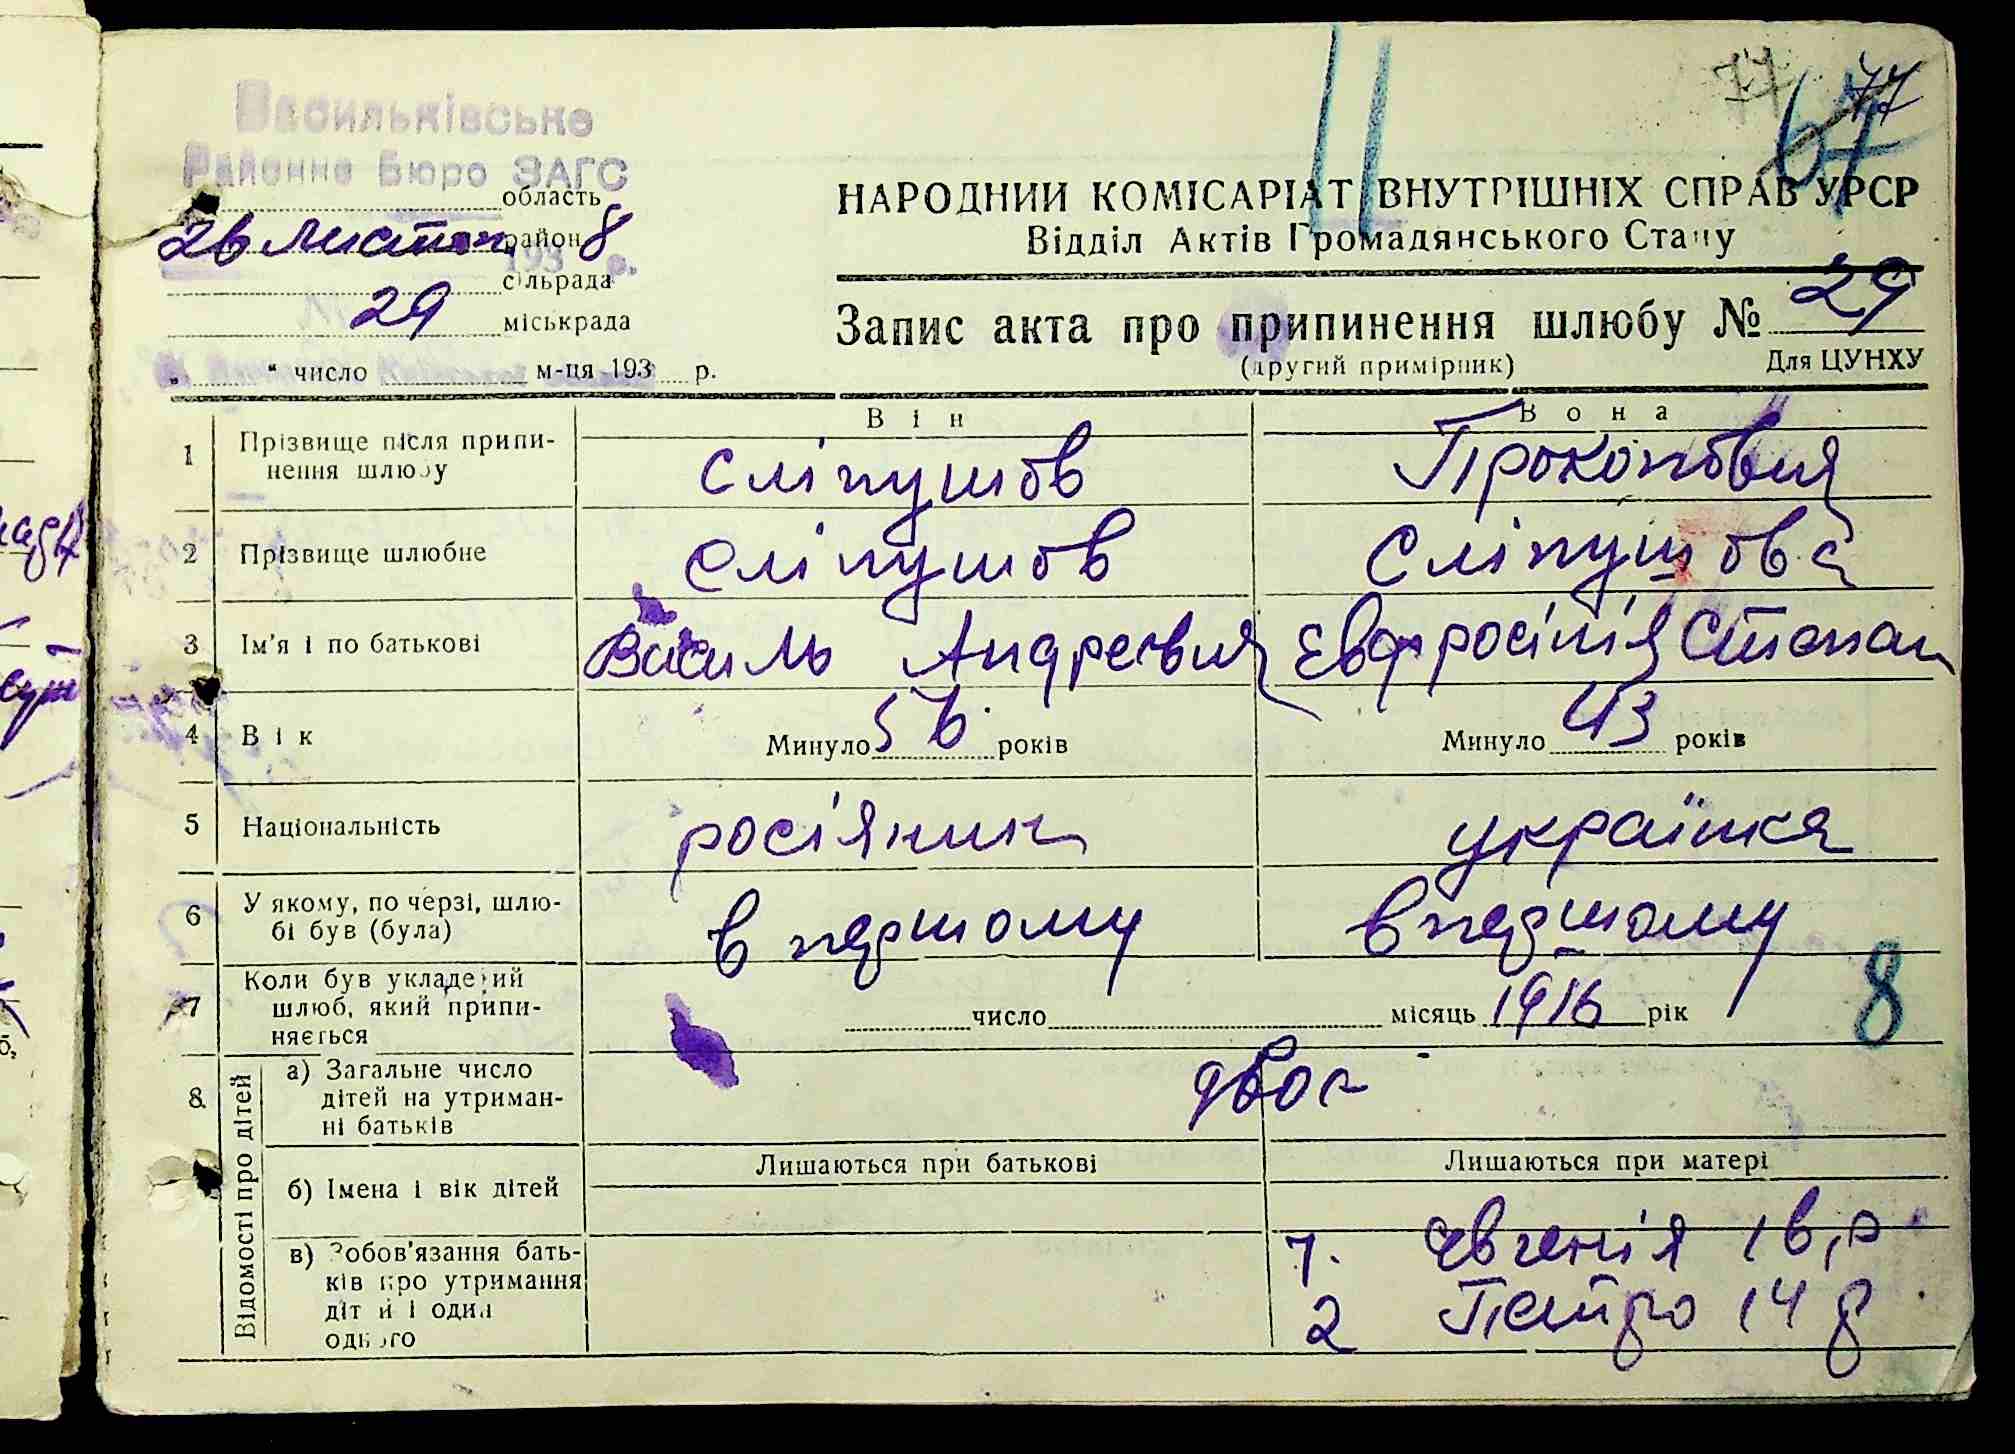 Васильківське
Районне Бюро ЗАГС
область
26 Листоп район 8
193 р.
сільрада
29 міськрада
„ “ число м-ця 193 р.
77 67 77
НАРОДНИЙ КОМІСАРІАТ ВНУТРІШНІХ СПРАВ УРСР
Відділ Актів Громадянського Стану
Запис акта про припинення шлюбу № 29
(другий примірник) Для ЦУНХУ
Він Вона
1 Прізвище після припи-
нення шлюбу Сліпушов Прокопович
2 Прізвище шлюбне Сліпушов Сліпушова
3 Ім'я і по батькові Василь Андреєвич Євфросінія Степан
4 Вік Минуло 56 років Минуло 43 років
5 Національність росіянин українка
6 У якому, по черзі, шлю-
бі був (була) в першому в першому
7 Коли був укладений
шлюб, який припи-
няється число місяць 1916 рік 8
8. Відомості про дітей
а) Загальне число
дітей на утриман-
ні батьків двоє
Лишаються при батькові Лишаються при матері
б) Імена і вік дітей
1. Євгенія 16 р
в) Зобов'язання бать-
ків про утримання
дітей і один
одного
2 Петро 14 р